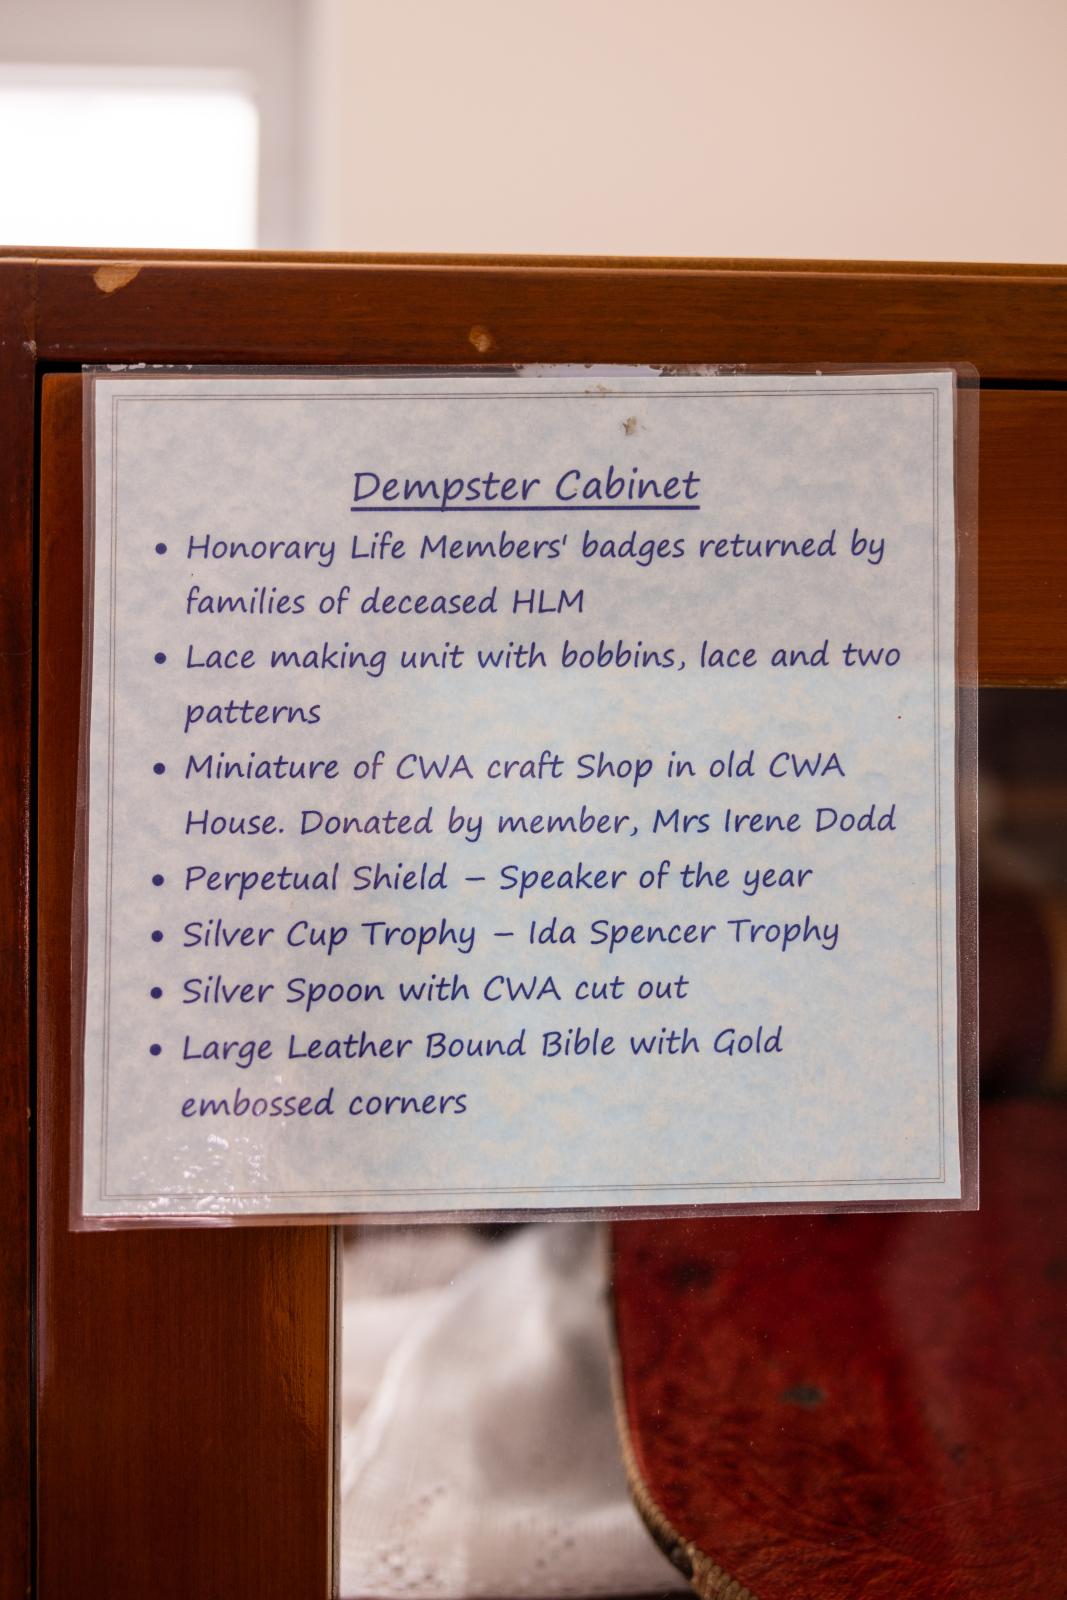 Dempster Cabinet
• Honorary Life Members' badges returned by
families of deceased HLM
• Lace making unit with bobbins, lace and two
patterns
• Miniature of CWA craft Shop in old CWA
House. Donated by member, Mrs Irene Dodd
• Perpetual Shield – Speaker of the year
• Silver Cup Trophy – Ida Spencer Trophy
• Silver Spoon with CWA cut out
• Large Leather Bound Bible with Gold
embossed corners